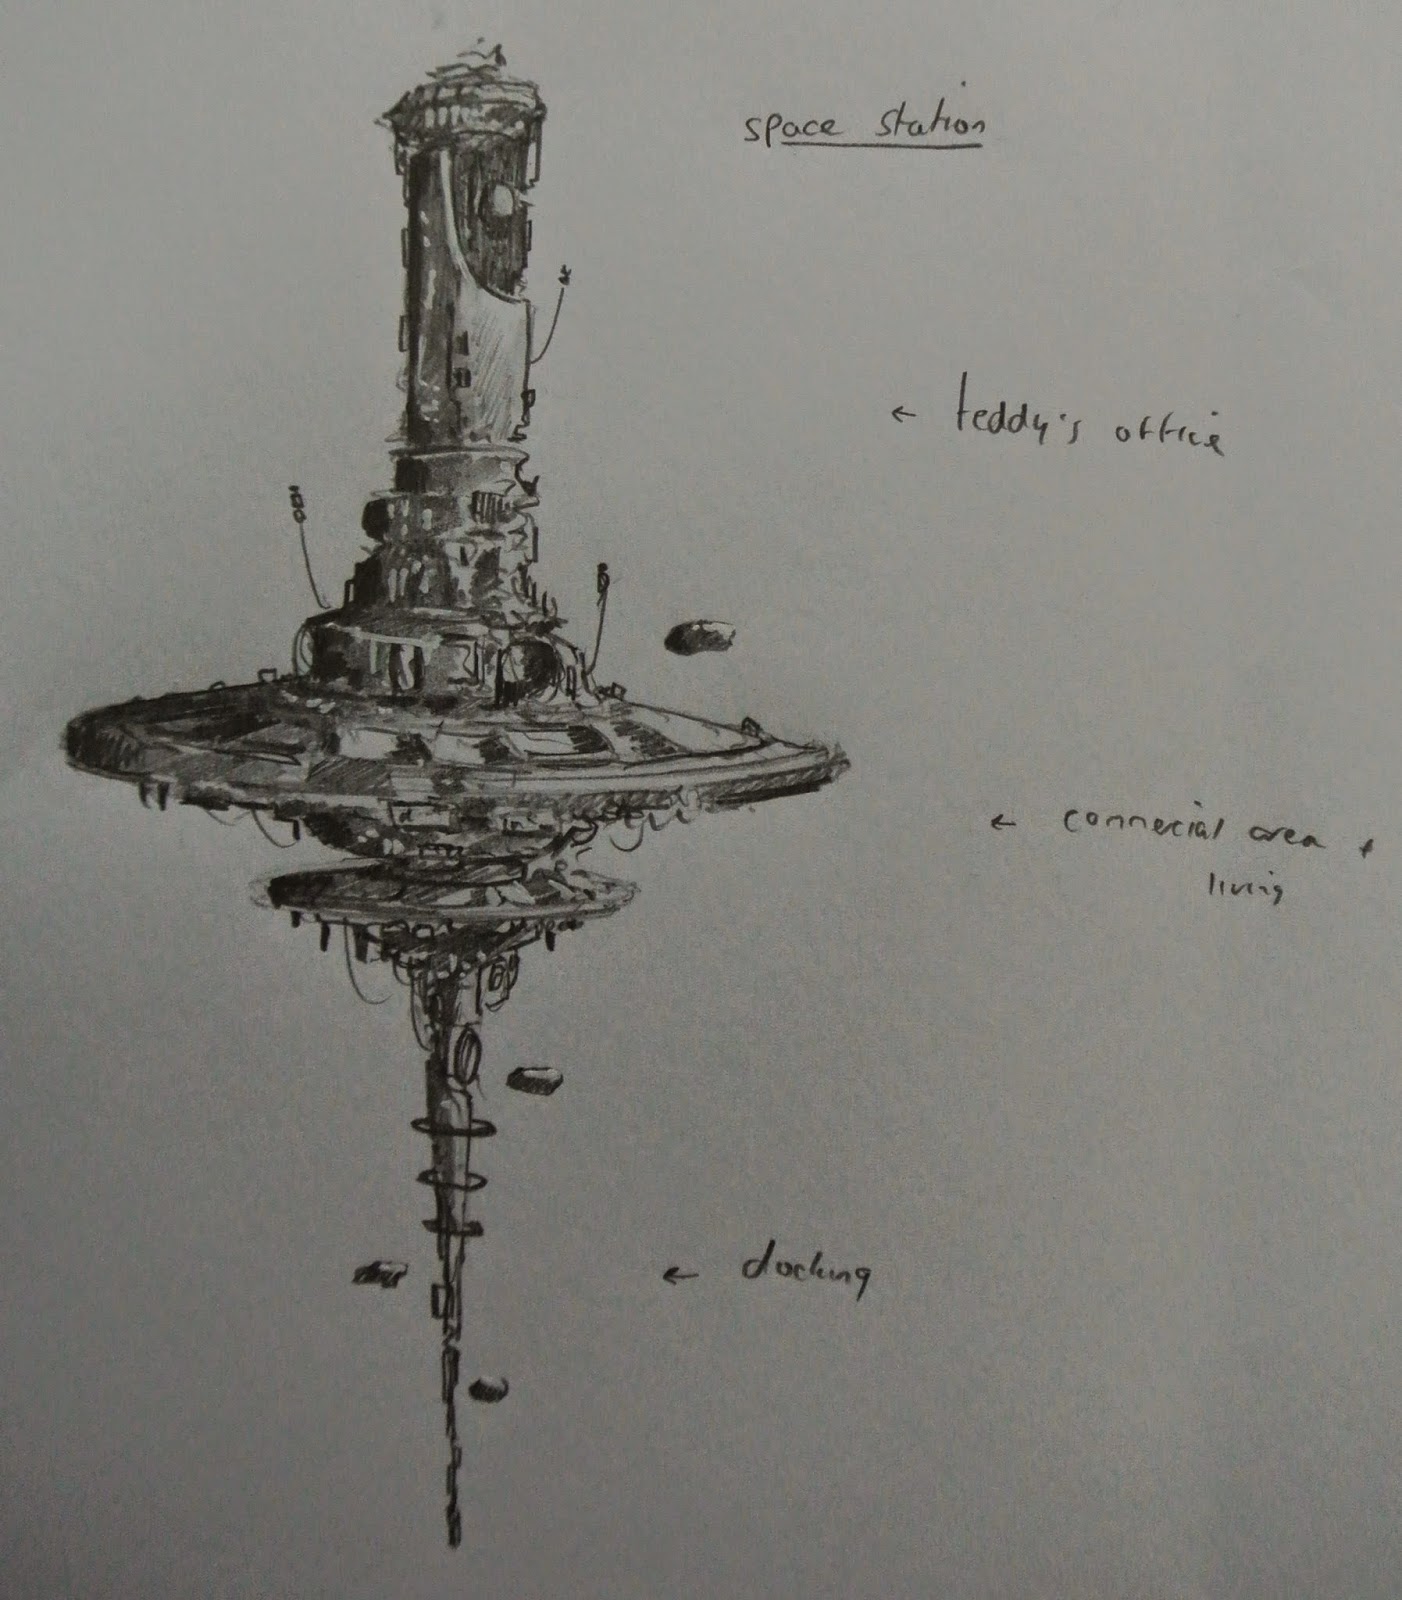 space station
← teddy's office
← commercial area +
living
← docking